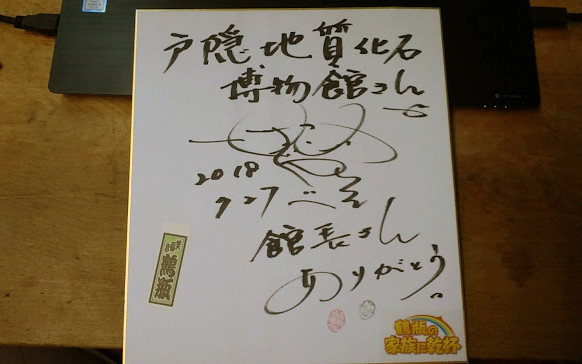 戸隠地質化石
博物館さん
江
2018
9 27 べえ
館長さん
ありがとう。
鶴瓶
鶴瓶の
家族に乾杯